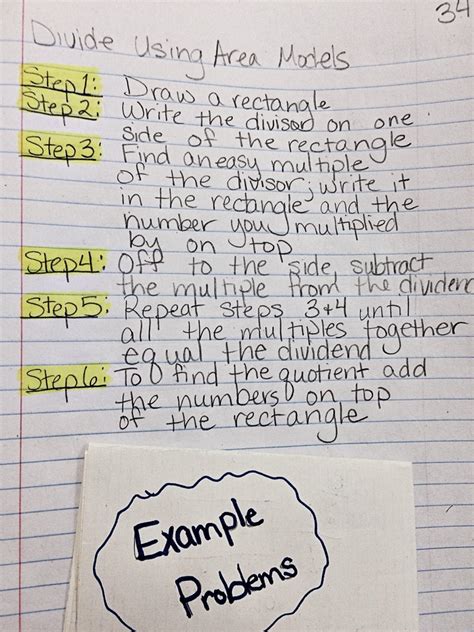 34
Divide Using Area Models
Step 1: Draw a rectangle
Step 2: Write the divisor on one
side of the rectangle
Step 3: Find an easy multiple
of the divisor; write it
in the rectangle and the
number you multiplied
by on top
Step 4: Off to the side, subtract
the multiple from the dividend
Step 5: Repeat steps 3+4 until
all the multiples together
equal the dividend
Step 6: To find the quotient add
the numbers on top
of the rectangle
Example
Problems